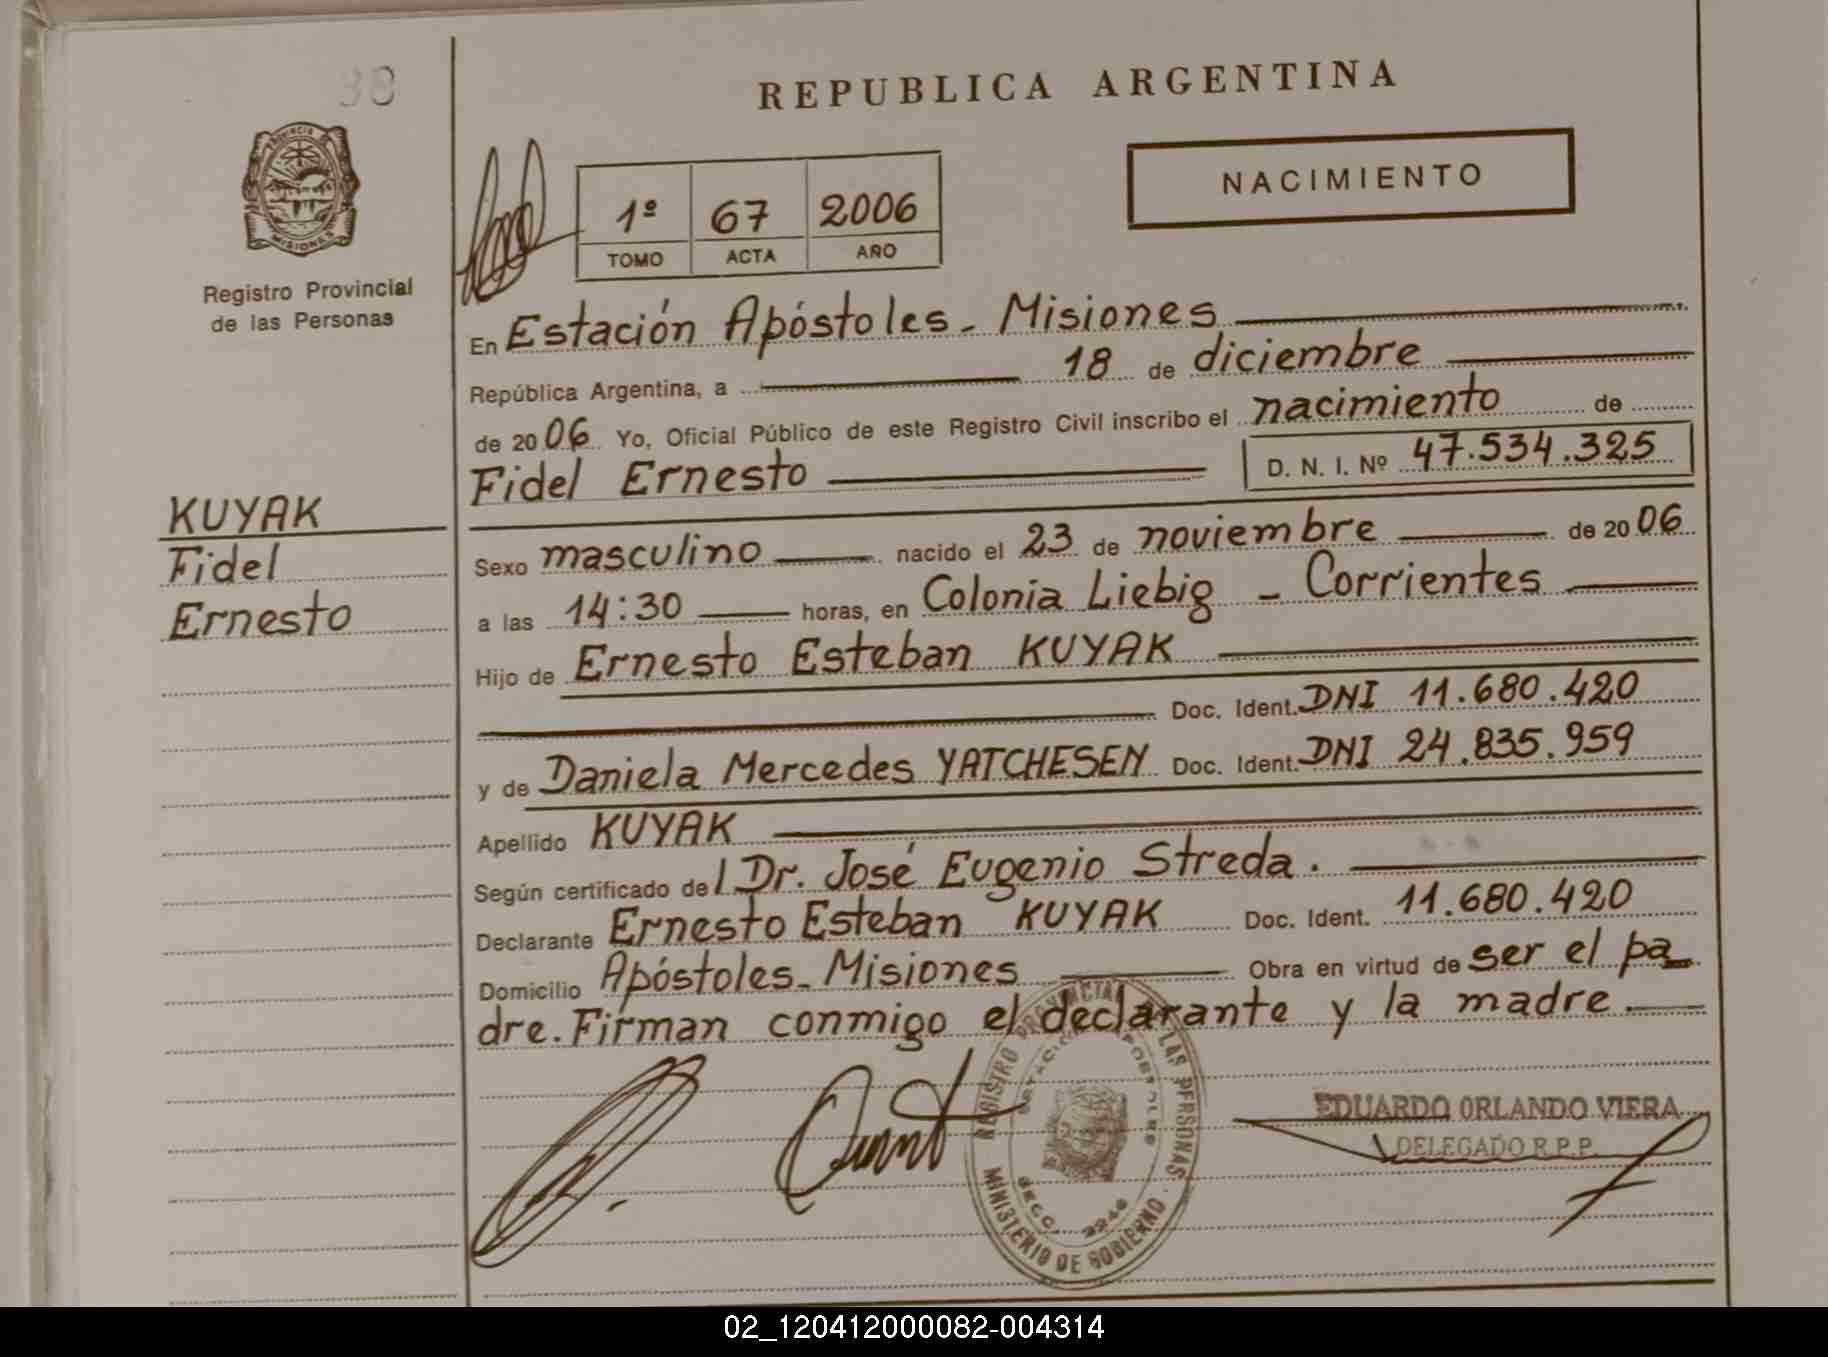 38
REPUBLICA ARGENTINA
PROVINCIA
MISIONES
Registro Provincial
de las Personas
1º 67 2006
TOMO ACTA AÑO
NACIMIENTO
En Estación Apóstoles - Misiones
República Argentina, a 18 de diciembre
de 2006 Yo, Oficial Público de este Registro Civil inscribo el nacimiento de
Fidel Ernesto D. N. I. Nº 47.534.325
KUYAK
Fidel
Ernesto
Sexo masculino nacido el 23 de noviembre de 2006
a las 14:30 horas, en Colonia Liebig - Corrientes
Hijo de Ernesto Esteban KUYAK
Doc. Ident. DNI 11.680.420
y de Daniela Mercedes YATCHESEN Doc. Ident. DNI 24.835.959
Apellido KUYAK
Según certificado del Dr. José Eugenio Streda.
Declarante Ernesto Esteban KUYAK Doc. Ident. 11.680.420
Domicilio Apóstoles - Misiones Obra en virtud de ser el pa
dre. Firman conmigo el declarante y la madre.
REGISTRO PROVINCIAL DE LAS PERSONAS
MINISTERIO DE GOBIERNO
EDUARDO ORLANDO VIERA
DELEGADO R.P.P.
02_120412000082-004314